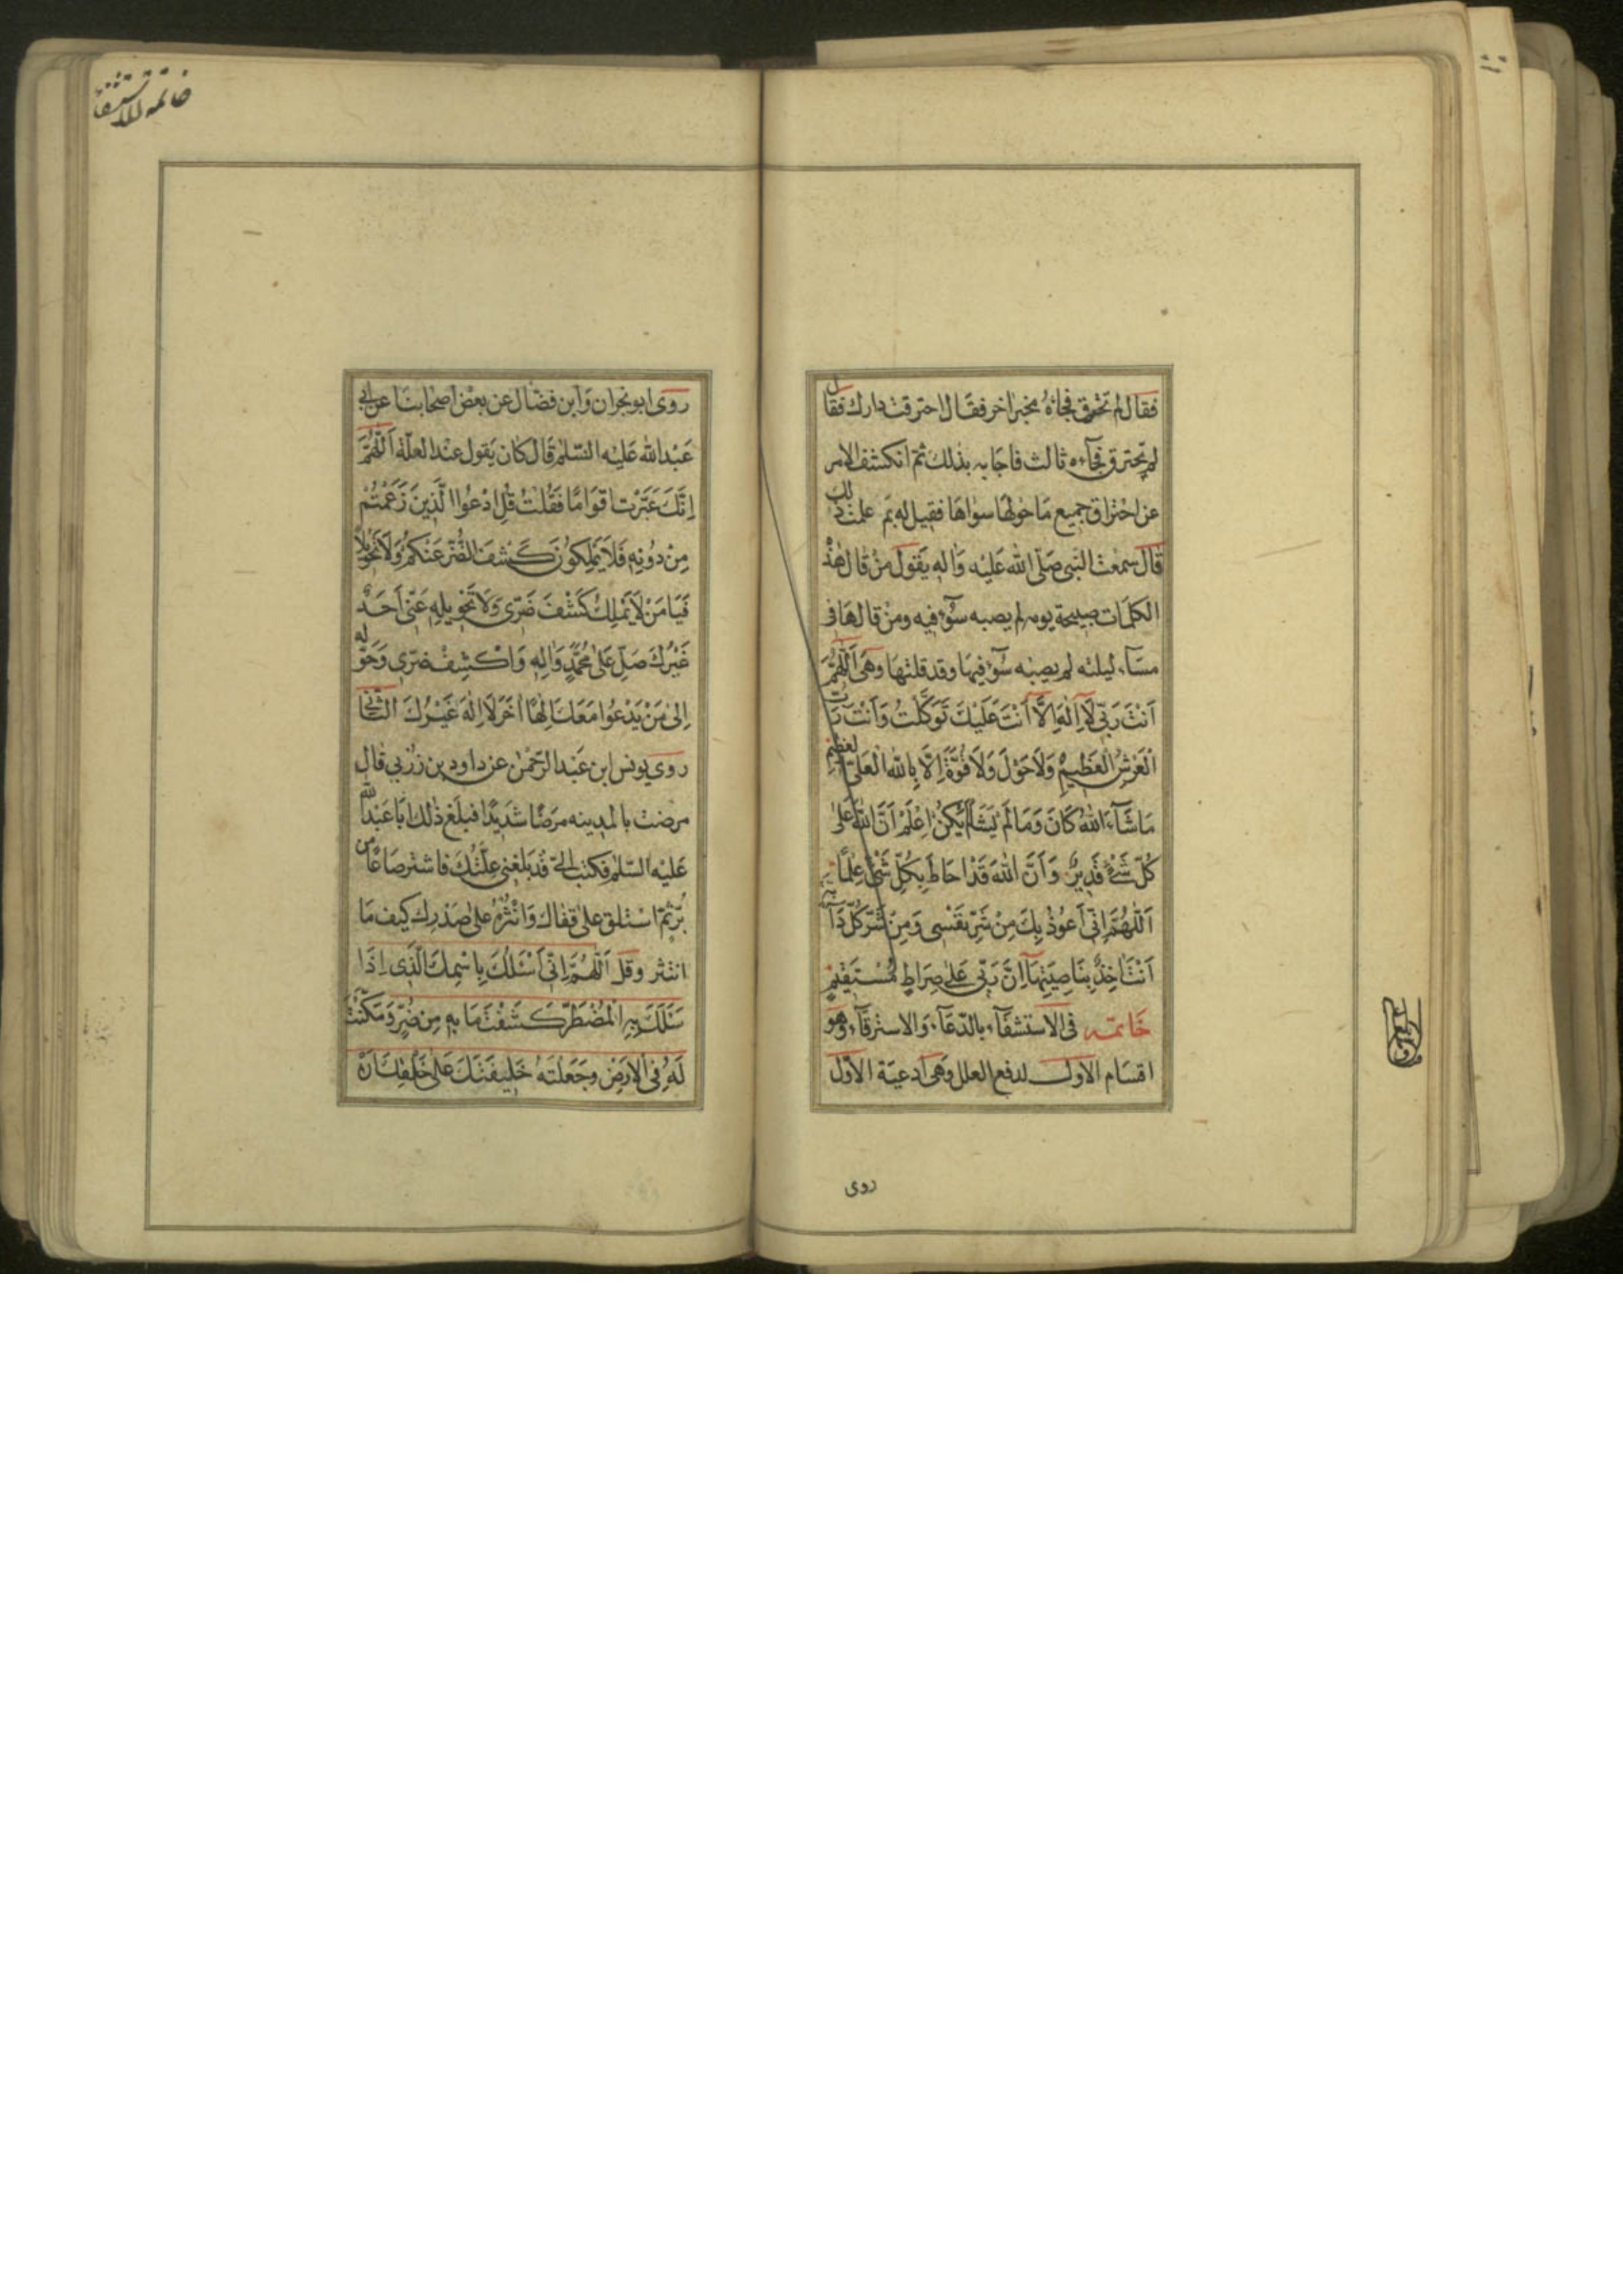 فقال لم تحترق فجاءه مخبر اخر فقال احترقت دارك فقال
لم تحترق فجآءه ثالث فاجابه بذلك ثم انكشف الامر
عن احتراق جميع ما حولها سواها فقيل له بم علمت ذلك
قال سمعت النبى صلّى الله عليه واله يقول من قال هذه
الكلمات صبيحة يومه لم يصبه سوٓء فيه ومن قالها فى
مسآء ليلته لم يصبه سوٓء فيها وقد قلتها وهى اَللّٰهُمَّ
اَنْتَ رَبّى لَآ اِلٰهَ اِلَّا اَنْتَ عَلَيْكَ تَوَكَّلْتُ وَاَنْتَ رَبُّ
الْعَرْشِ الْعَظِيمِ وَلَا حَوْلَ وَلَا قُوَّةَ اِلَّا بِاللّٰهِ الْعَلِىّ الْعَظِيمِ
مَا شَآءَ اللّٰهُ كَانَ وَمَا لَمْ يَشَأْ لَمْ يَكُنْ اِعْلَمْ اَنَّ اللّٰهَ عَلٰى
كُلّ شَىْءٍ قَدِيرٌ وَاَنَّ اللّٰهَ قَدْ اَحَاطَ بِكُلّ شَىْءٍ عِلْمًا
اَللّٰهُمَّ اِنّى اَعُوذُ بِكَ مِنْ شَرّ نَفْسى وَمِنْ شَرّ كُلّ دَآبَّةٍ
اَنْتَ اٰخِذٌ بِنَاصِيَتِهَآ اِنَّ رَبّى عَلٰى صِرَاطٍ مُسْتَقِيمٍ
خاتمه فى الاستشفآء بالدّعآء والاسترقآء وهو
اقسام الاول لدفع العلل وهى ادعيّة الاوّل
روى
خاتمه الاستشفا
روى ابو نجران وابن فضّال عن بعض اصحابنا عن ابى
عبد الله عليه السّلم قال كان يقول عند العلّة اَللّٰهُمَّ
اِنَّكَ عَيَّرْتَ اَقْوَامًا فَقُلْتَ قُلِ ادْعُوا الَّذِينَ زَعَمْتُمْ
مِنْ دُونِهِ فَلَا يَمْلِكُونَ كَشْفَ الضُّرّ عَنْكُمْ وَلَا تَحْوِيلًا
فَيَا مَنْ لَا يَمْلِكُ كَشْفَ ضُرّى وَلَا تَحْوِيلِهِ عَنّى اَحَدٌ
غَيْرُكَ صَلّ عَلٰى مُحَمَّدٍ وَاٰلِهِ وَاكْشِفْ ضُرّى وَحَوّله
اِلٰى مَنْ يَدْعُوا مَعَكَ اِلٰهًا اٰخَرَ لَا اِلٰهَ غَيْرُكَ الثّانى
روى يونس ابن عبد الرّحمٰن عن داود بن زربى قال
مرضت بالمدينه مرضًا شديدًا فبلغ ذٰلك ابا عبد الله
عليه السّلم فكتب الىّ قد بلغنى علّتك فاشتر صاعًا من
برّ ثمّ استلق علٰى قفاك وانثره علٰى صدرك كيف ما
انتثر وقل اَللّٰهُمَّ اِنّى اَسْئَلُكَ بِاسْمِكَ الَّذى اِذَا
سَئَلَكَ بِهِ الْمُضْطَرّ كَشَفْتَ مَا بِهِ مِنْ ضُرّ وَمَكَّنْتَ
لَهُ فِى الْاَرْضِ وَجَعَلْتَهُ خَلِيفَتَكَ عَلٰى خَلْقِكَ اَنْ